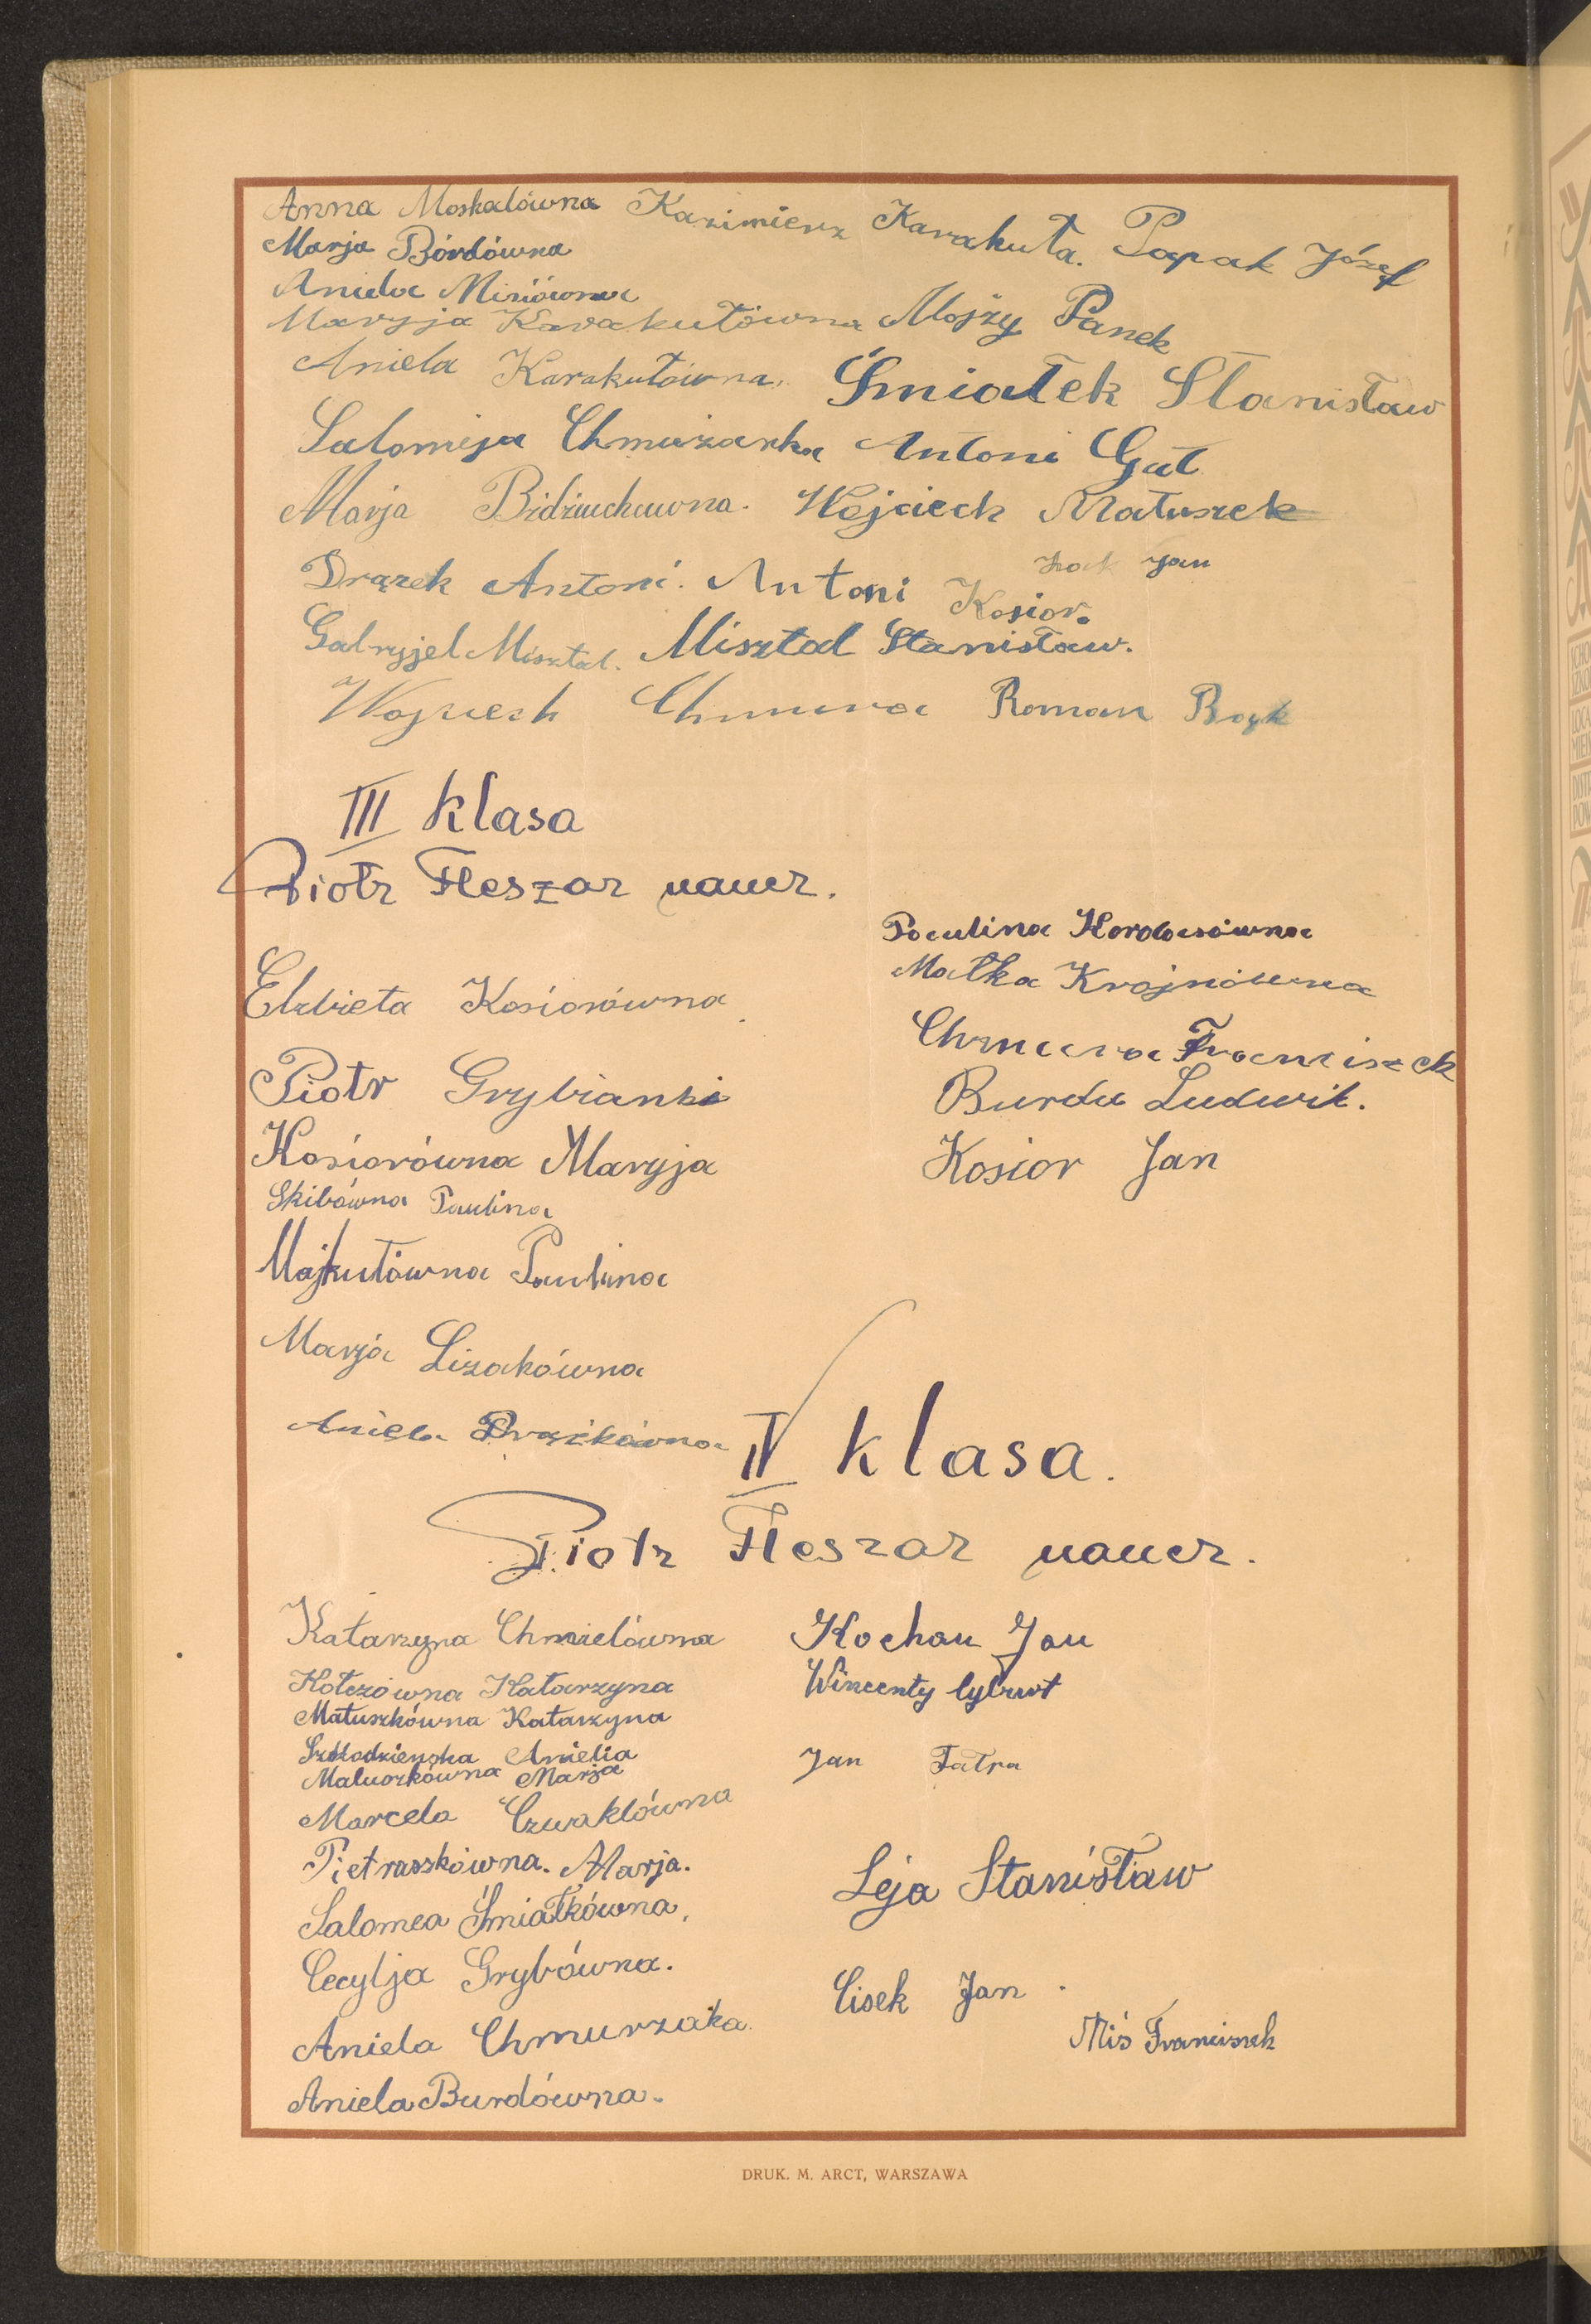 Anna Moskalówna Kazimierz Karakuła. Papak Józef
Marja Bórdówna
Aniela Misiówna
Maryja Karakułówna Mojży Panek
Aniela Karakułówna. Śmiałek Stanisław
Salomeja Chmurzanka Antoni Gut
Marja Bidziuchuwna. Wojciech Matuszek
Drązek Antoni. Antoni Kosior. Żak Jan
Gabryjel Misztal. Misztal Stanisław.
Wojciech Chmura Roman Bąk
III klasa
Piotr Fleszar naucz.
Elzbieta Kosiorówna
Piotr Grybianki
Kosiorówna Maryja
Skibówna Paulina
Majkutówna Paulina
Marja Lizakówna
Aniela Drązkówna
Paulina Kordasówna
Małka Krojnówna
Chmura Franciszek
Burda Ludwik.
Kosior Jan
IV klasa.
Piotr Fleszar naucz.
Katarzyna Chmielówna
Kołczówna Katarzyna
Matuszkówna Katarzyna
Anielia
Maluszkówna Marja
Marcela Czwakłówna
Pietraszkówna. Marja.
Salomea Śmiałkówna,
Cecylja Grybówna.
Aniela Chmurzaka.
Aniela Burdówna.
Kochan Jan
Wincenty Cybrut
Jan Fatra
Leja Stanisław
Cisek Jan.
Miś Franciszek
DRUK. M. ARCT, WARSZAWA